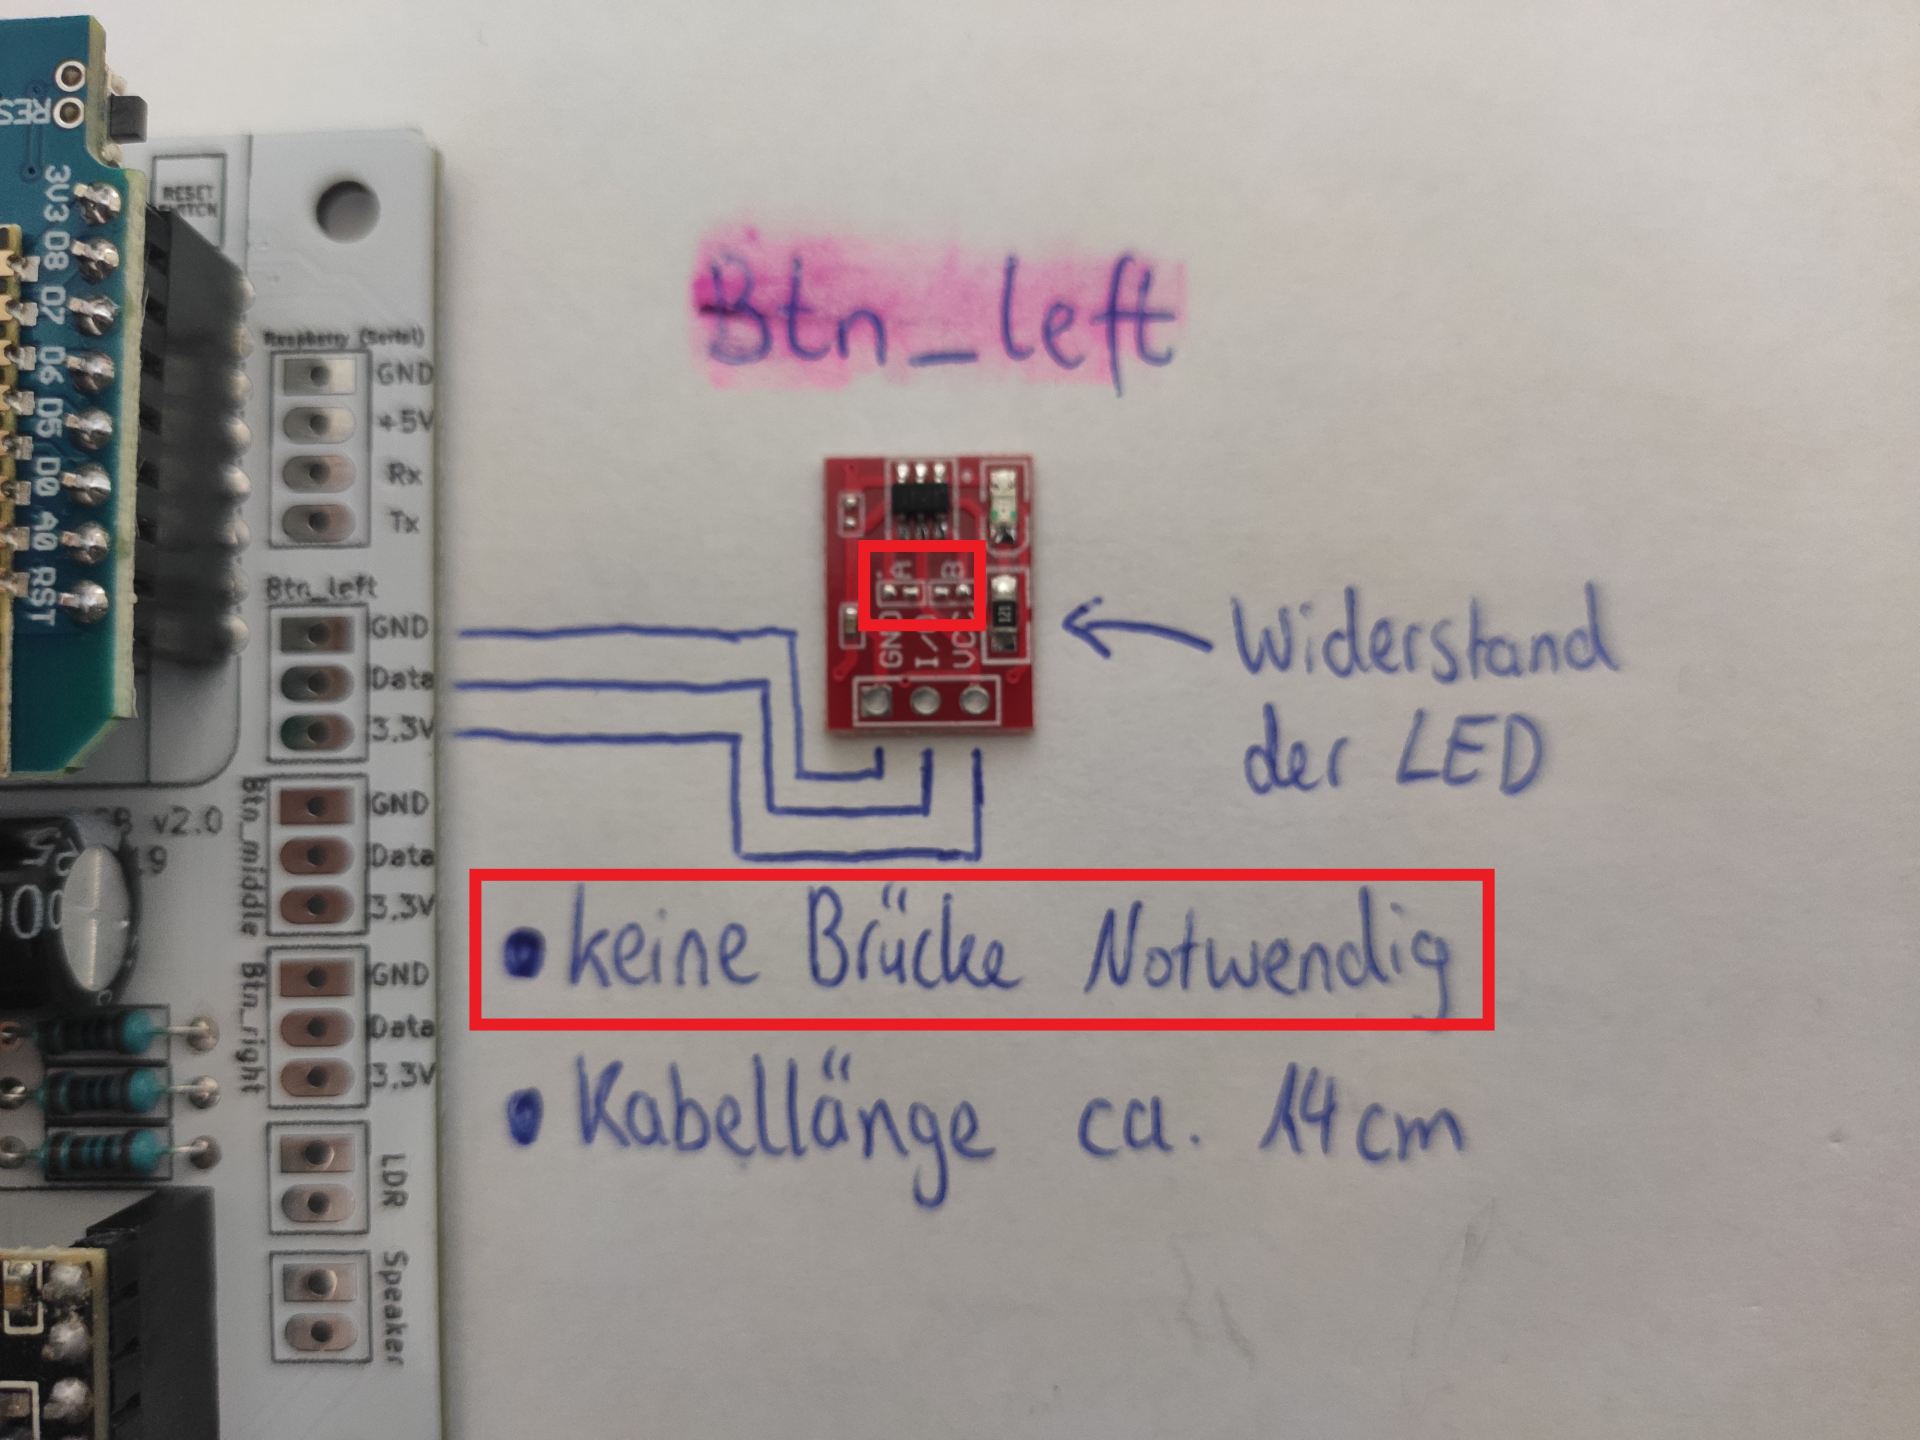 RES
3V3
D8
D7
D6
D5
D0
A0
RST
RESET
SWITCH
Raspberry (Seriel)
GND
+5V
Rx
Tx
Btn_left
GND
Data
3.3V
v2.0
Btn_middle
GND
Data
3.3V
Btn_right
GND
Data
3.3V
LDR
Speaker
Btn_left
A
B
GND
I/O
VCC
121
Widerstand
der LED
• keine Brücke Notwendig
• Kabellänge ca. 14cm